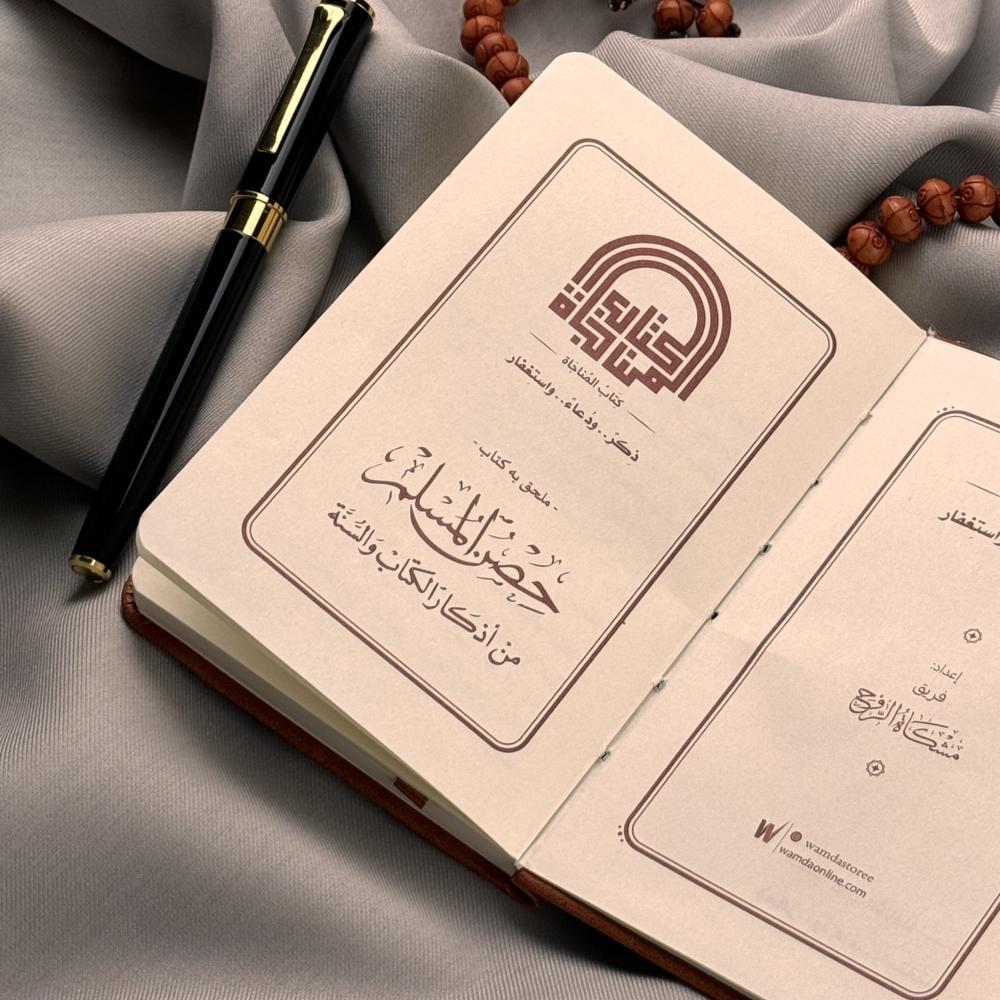 كتاب
المناجاة
كتابُ المُناجَاة
ذِكرٌ.. ودُعاءٌ.. واستِغفار
- ملحق به كتاب -
حصن المسلم
من أذكار الكتاب والسنة
واستِغفار
إعداد:
فريق
مشكاة الروح
W
wamdastoree
wamdaonline.com